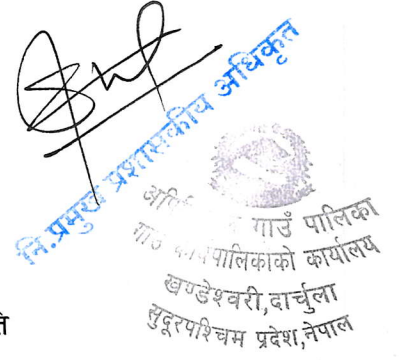 नि.प्रमुख प्रशासकीय अधिकृत
गाउँ पालिका
कार्यालय
खण्डेश्वरी,दार्चुला
सुदूरपश्चिम प्रदेश,नेपाल
ति